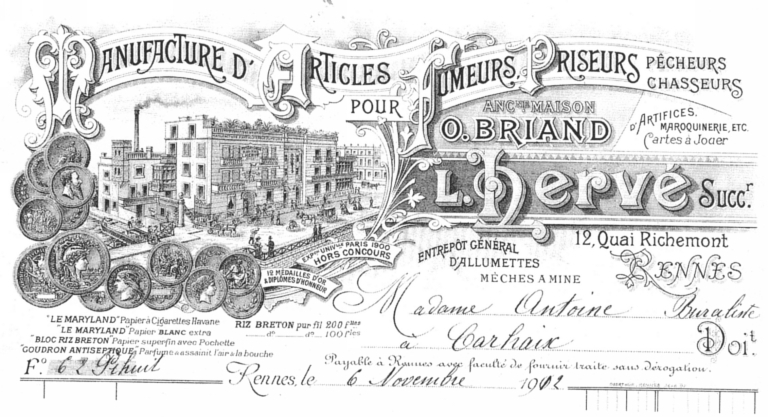 MANUFACTURE D'ARTICLES
POUR
FUMEURS, PRISEURS
PÊCHEURS
CHASSEURS
ANCNE MAISON
O. BRIAND
D'ARTIFICES,
MAROQUINERIE, ETC.
Cartes à Jouer
L. Hervé Succr.
12, Quai Richemont
RENNES
ENTREPÔT GÉNÉRAL
D'ALLUMETTES
MÈCHES A MINE
EXPon UNIVlle PARIS 1900
HORS CONCOURS
12 MÉDAILLES D'OR
& DIPLÔMES D'HONNEUR
"LE MARYLAND" Papier à Cigarettes Havane
"LE MARYLAND" Papier BLANC extra
"BLOC RIZ BRETON" Papier superfin avec Pochette
"GOUDRON ANTISEPTIQUE" Parfume & assainit l'air & la bouche
RIZ BRETON pur fil 200 flles
do do 100 flles
Madame Antoine Buraliste
à Carhaix Doit.
Payable à Rennes avec faculté de fournir traite sans dérogation.
Fo. 62
Rennes, le 6 Novembre 1902